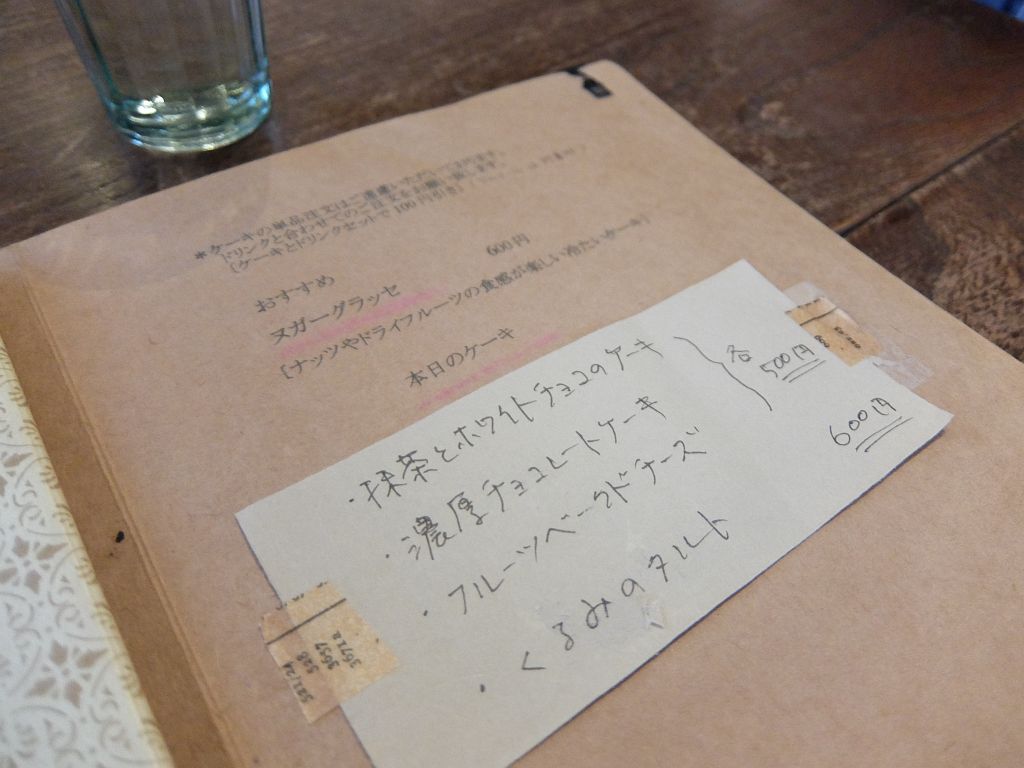 *ケーキの単品注文はご遠慮いただいております。
ドリンクと合わせてのご注文をお願い致します。
[ケーキとドリンクセットで100円引き]
おすすめ
ヌガーグラッセ 600円
[ナッツやドライフルーツの食感が楽しい冷たいケーキ]
本日のケーキ
・抹茶とホワイトチョコのケーキ
・濃厚チョコレートケーキ
・フルーツベークドチーズ
各500円
・くるみのタルト 600円